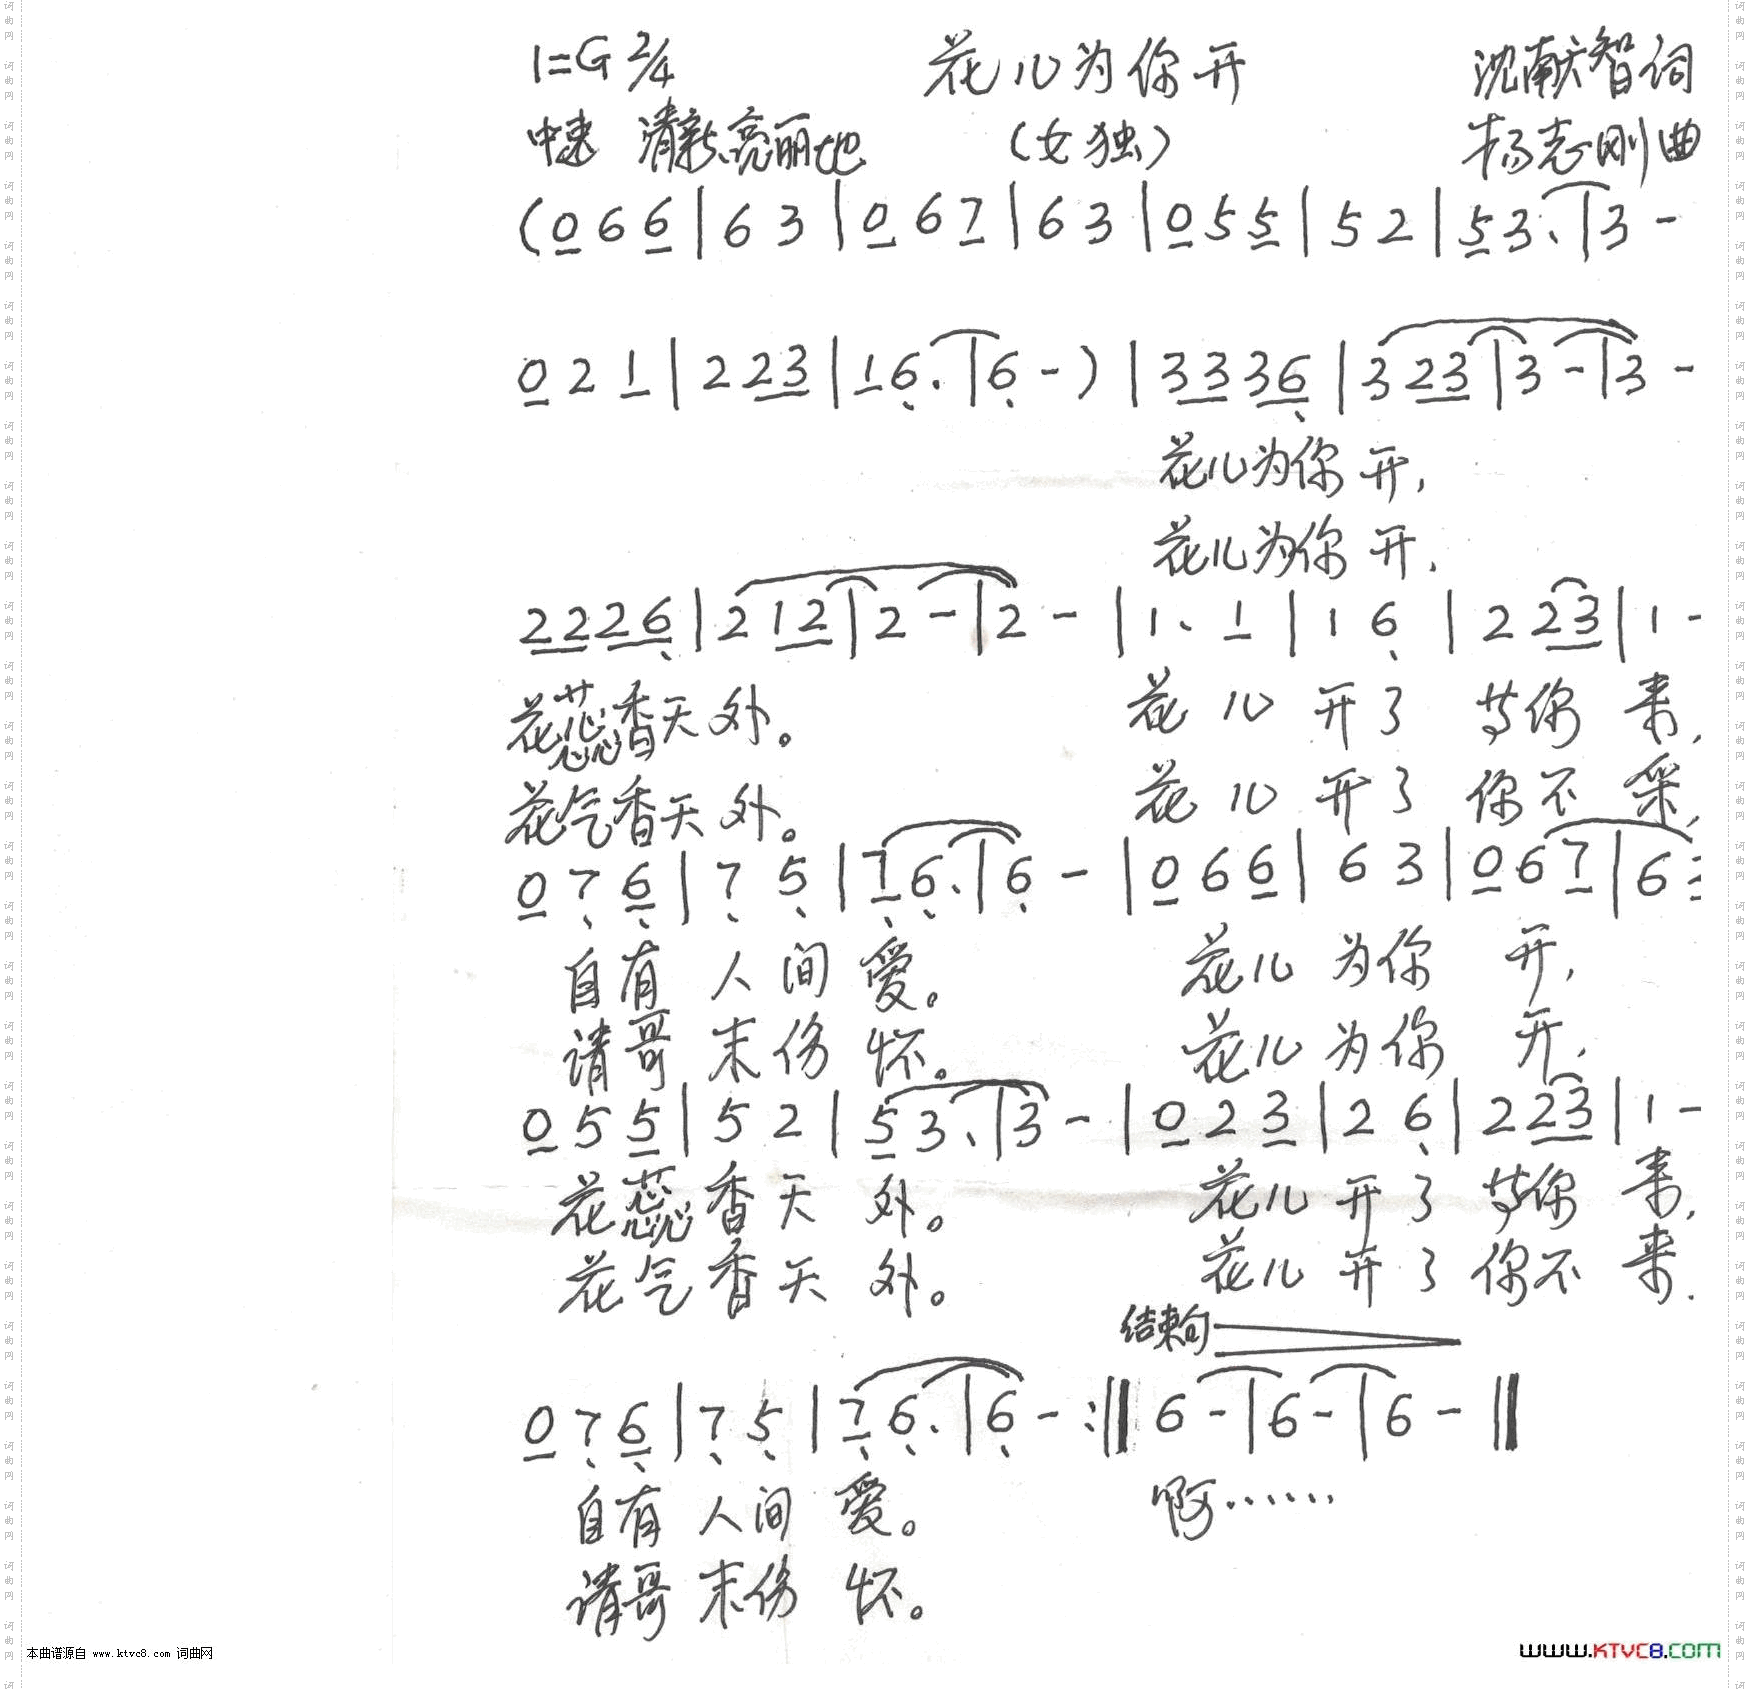 1=G 2/4 花儿为你开 沈献智词
中速 清新、亮丽地 (女独) 杨志刚曲
(0 6 6 | 6 3 | 0 6 7 | 6 3 | 0 5 5 | 5 2 | 5 3. | 3 -
0 2 1 | 2 2 3 | 1 6. | 6 - ) | 3 3 3 6 | 3 2 3 | 3 - | 3 -
花儿为你 开,
花儿为你 开.
2 2 2 6 | 2 1 2 | 2 - | 2 - | 1. 1 | 1 6 | 2 2 3 | 1 -
花蕊香天 外。 花 儿 开了 等你 来,
花气香天 外。 花 儿 开了 你不 采,
0 7 6 | 7 5 | 7 6. | 6 - | 0 6 6 | 6 3 | 0 6 7 | 6 3
自有 人间 爱。 花儿 为你 开,
请哥 末伤 怀。 花儿 为你 开,
0 5 5 | 5 2 | 5 3. | 3 - | 0 2 3 | 2 6 | 2 2 3 | 1 -
花蕊 香天 外。 花儿 开了 等你 来,
花气 香天 外。 花儿 开了 你不 来.
结束句
0 7 6 | 7 5 | 7 6. | 6 - :‖ 6 - | 6 - | 6 - ‖
自有 人间 爱。 啊……
请哥 末伤 怀。
本曲谱源自 www.ktvc8.com 词曲网
www.KTVC8.com